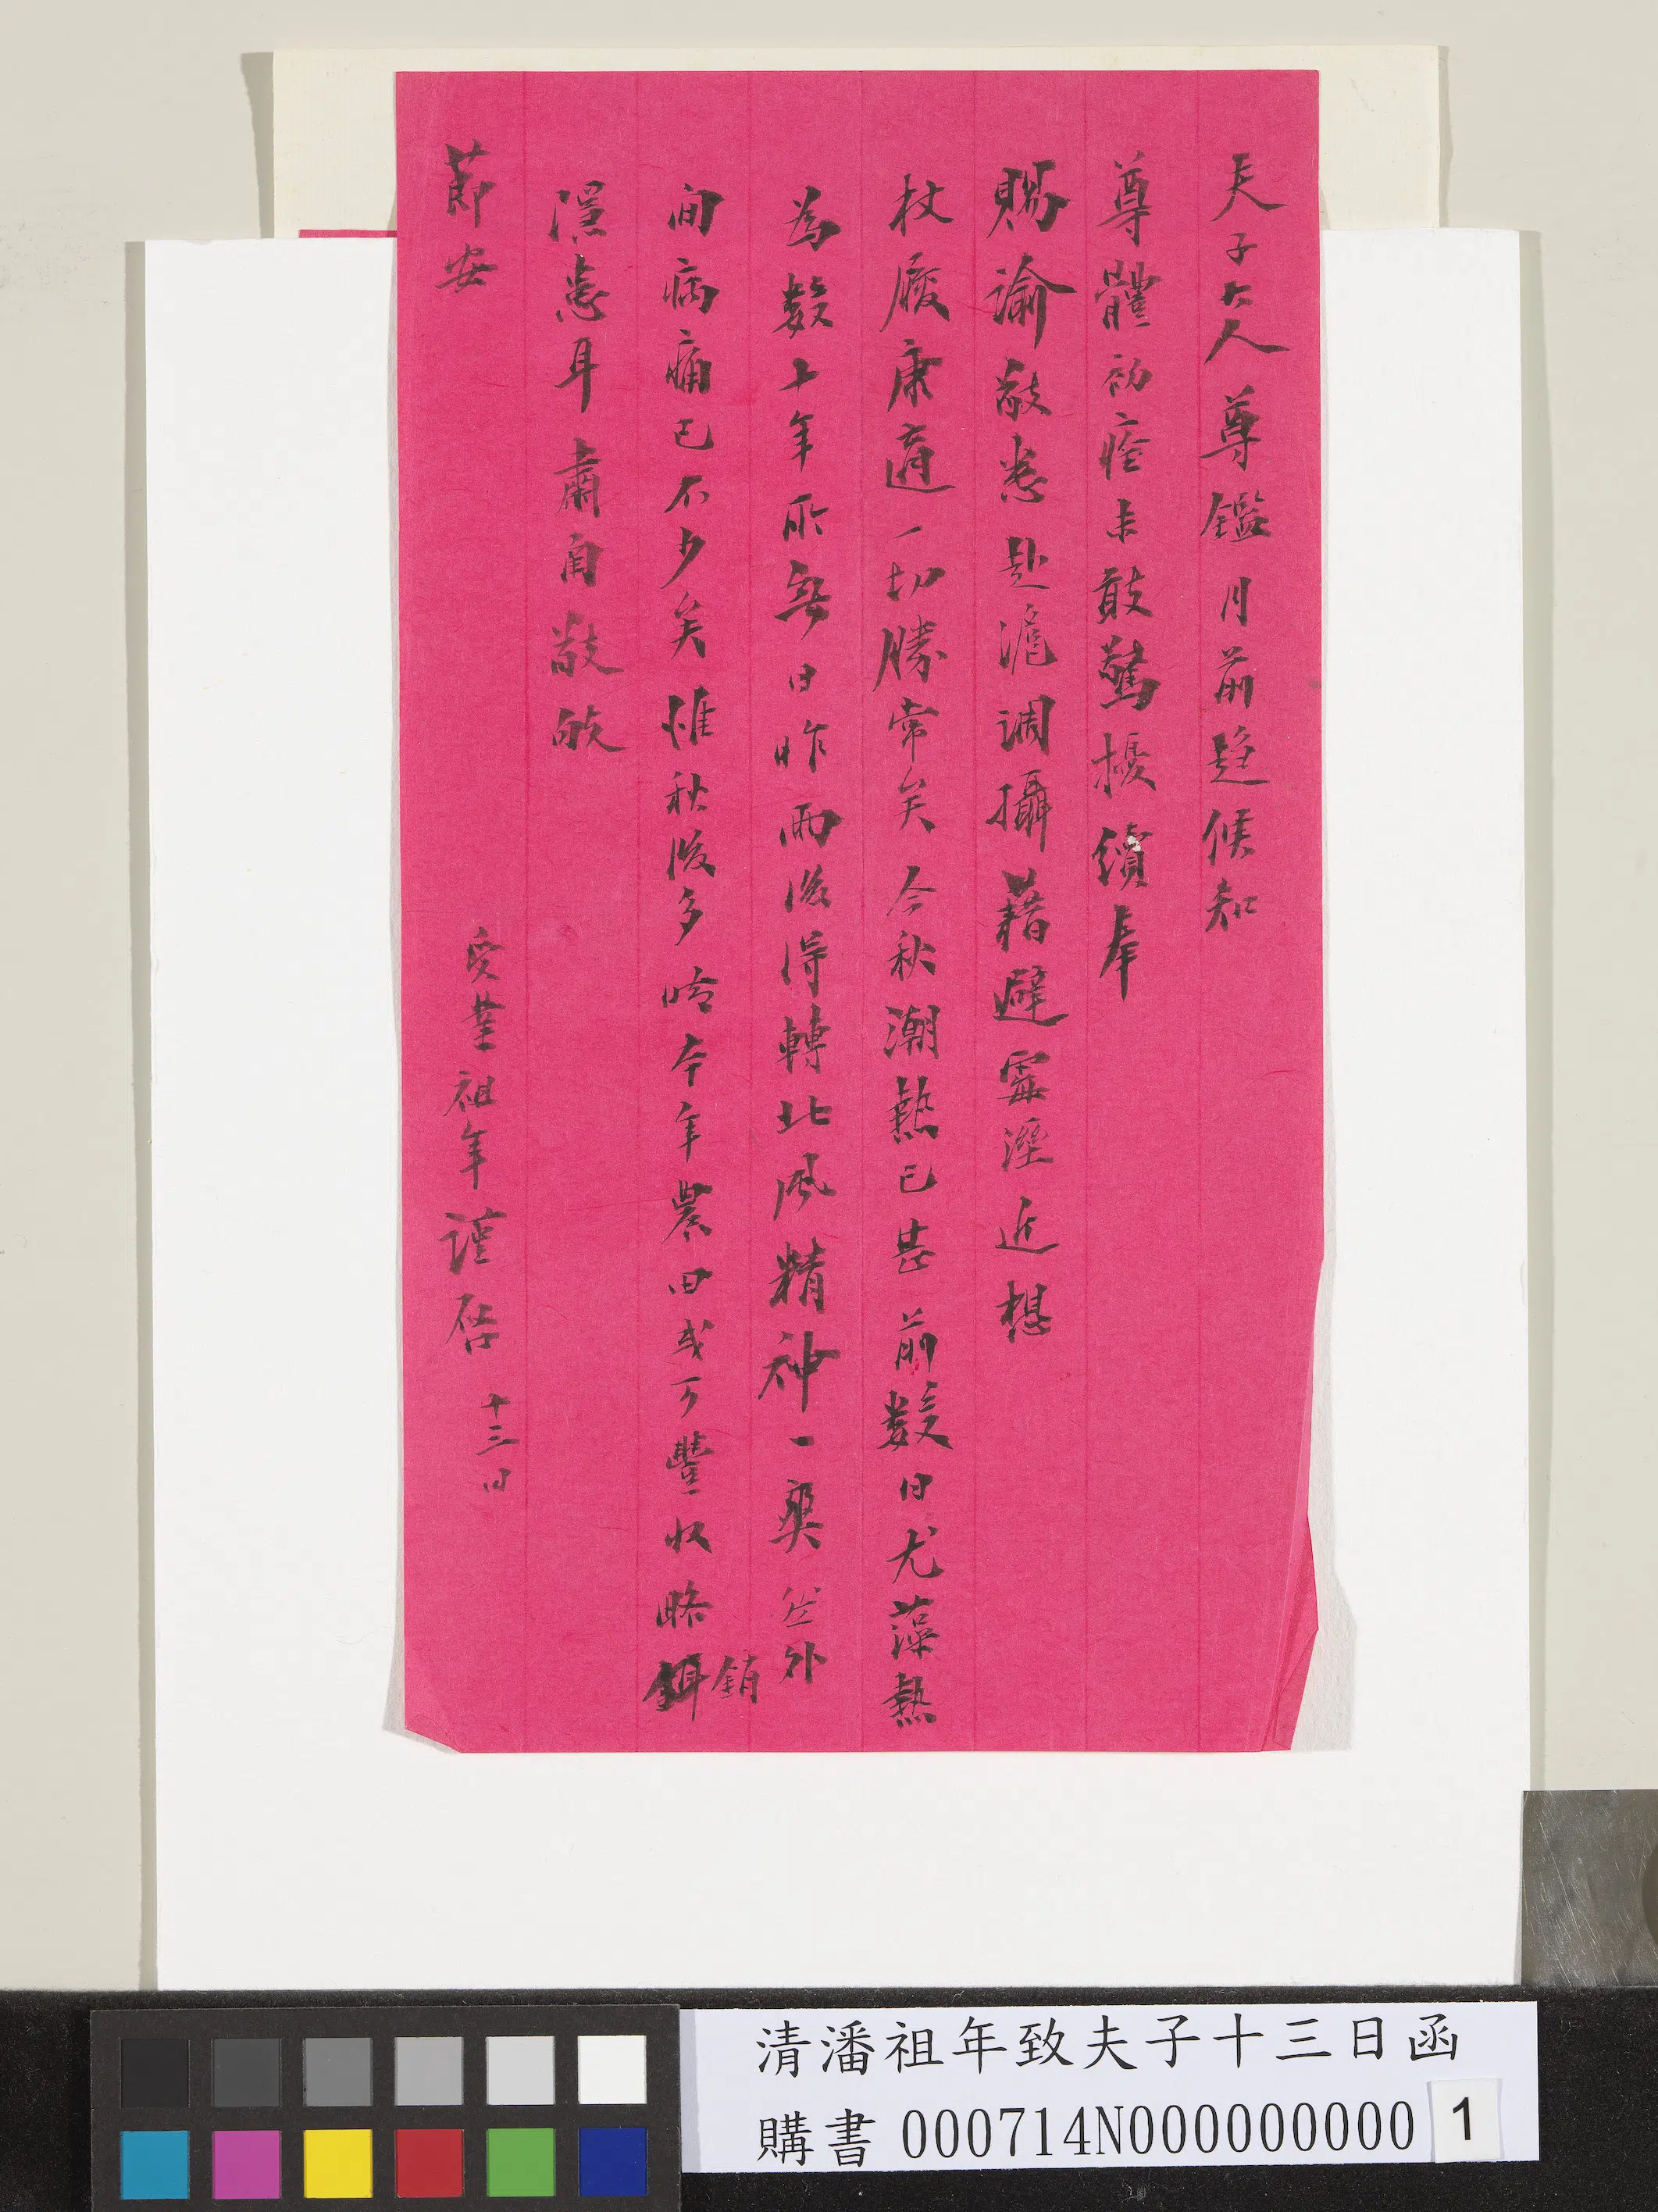 夫子大人尊鑑月前趨候知
尊體初痊未敢驚擾續奉
賜諭敬悉赴滬調攝藉避霉溼近想
杖履康適一切勝常矣今秋潮熱已甚前數日尤藻熱
為數十年所無日昨雨後得轉北風精神一爽然外
間病痛已不少矣惟秋後多晴本年農田或可豐收略
銷
隱患耳肅自敬敂
節安
受業祖年謹啓
十三日
清潘祖年致夫子十三日函
購書 000714N000000000 1